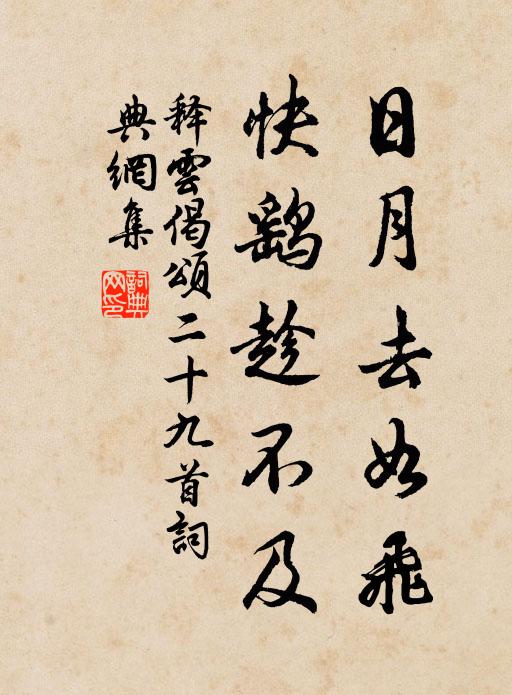 日月去如飛
快鷂趁不及
释雲偈頌二十九首詞
典網集
詞典网印